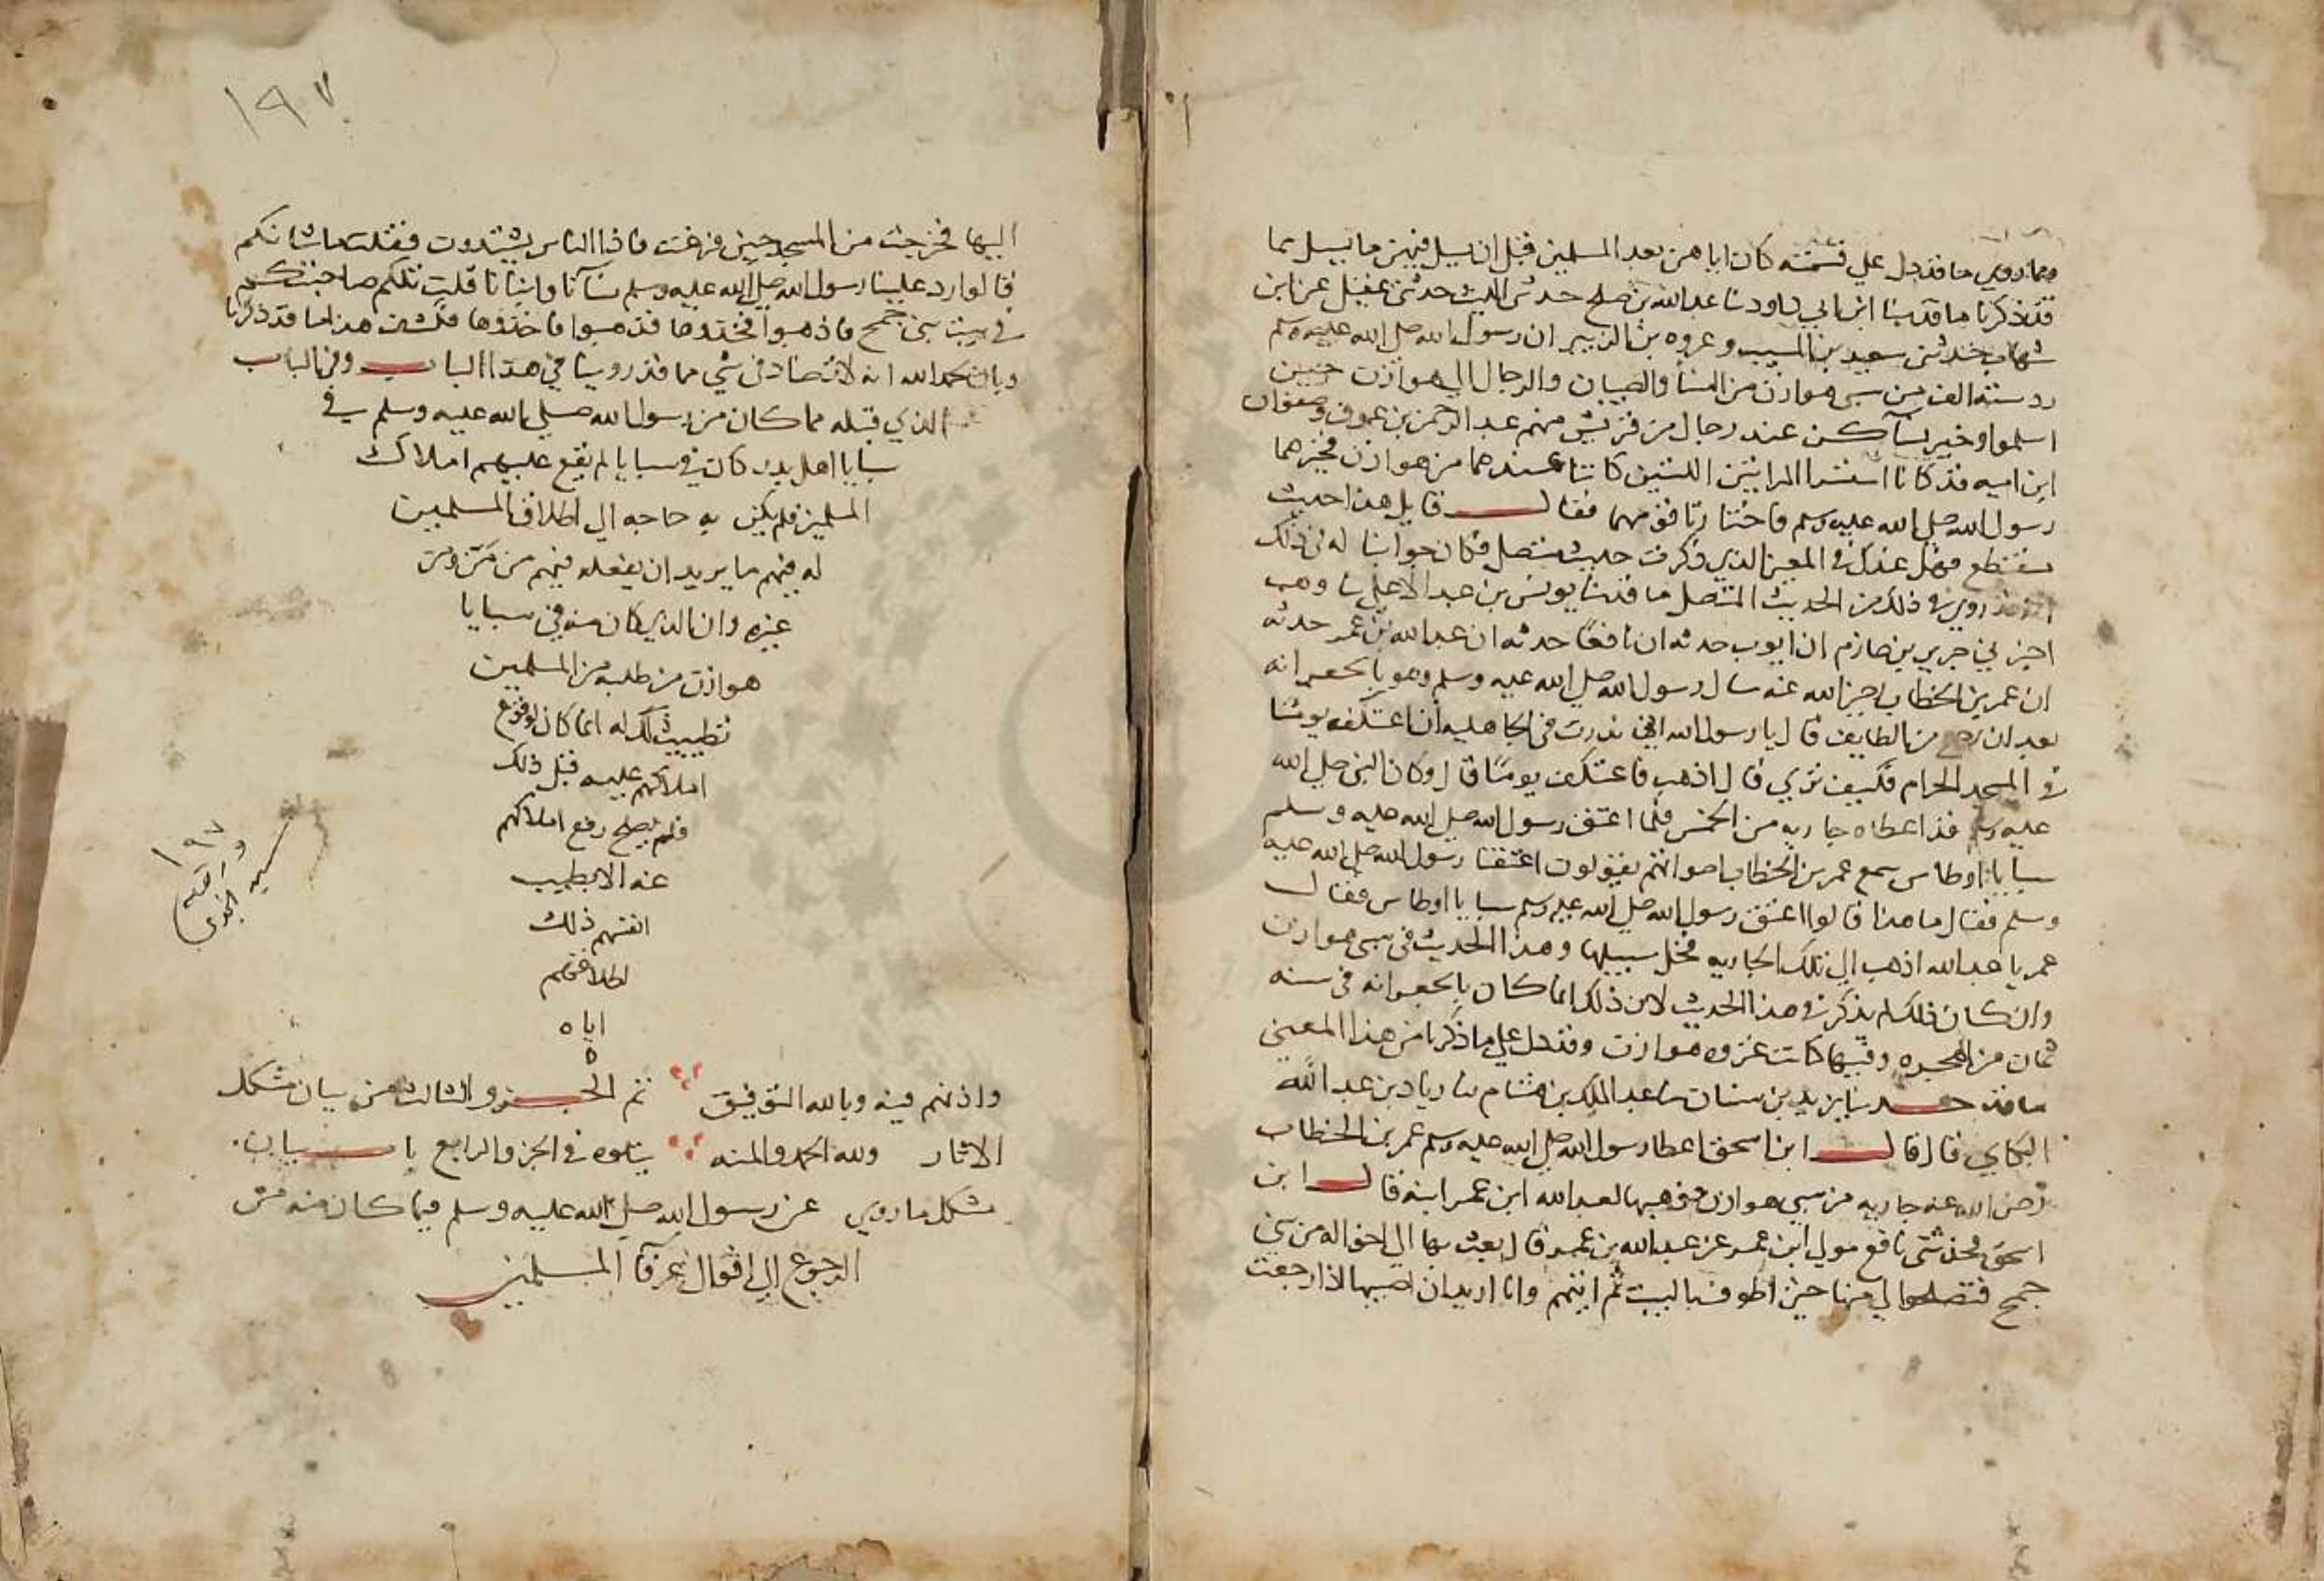 مما روي ما قد دل علي قسمته كان اياهن بعد المسلمين قبل ان يسيل فيهن ما يسيل مما
قد ذكرنا ما قد ثنا ابن ابي داود ثنا عبد الله بن صلح حدثني الليث حدثني عقيل عن ابن
شهاب حدثني سعيد بن المسيب وعروه بن الزبير ان رسول الله صلي الله عليه وسلم
رد ستة الف من سبي هوازن من النسا والصبيان والرجال الي هوازن حين
اسلموا وخير نسآ كن عند رجال من قريش منهم عبد الرحمن بن عوف وصفوان
ابن اميه قد كانا استسرا المراتين اللتين كانتا عندهما من هوازن فخيرهما
رسول الله صلي الله عليه وسلم فاختارتا قومهما فقال قايل هذا حديث
منقطع فهل عندك في المعني الذي ذكرت حديث متصل فكان جوابنا له في ذلك
انه قد روي في ذلك من الحديث المتصل ما قد ثنا يونس بن عبد الاعلي نا وهب
اخبرني جرير بن حازم ان ايوب حدثه ان نافعا حدثه ان عبد الله بن عمر حدثه
ان عمر بن الخطاب رضي الله عنه سال رسول الله صلي الله عليه وسلم وهو بالجعرانه
بعد ان رجع من الطايف قال يا رسول الله اني نذرت في الجاهليه ان اعتكف يومًا
في المسجد الحرام فكيف تري قال اذهب فاعتكف يومًا قال وكان النبي صلي الله
عليه وسلم قد اعطاه جاريه من الخمس فلما اعتق رسول الله صلي الله عليه وسلم
سبايا اوطاس سمع عمر بن الخطاب اصواتهم يقولون اعتقنا رسول الله صلي الله عليه
وسلم فقال ما هذا قالوا اعتق رسول الله صلي الله عليه وسلم سبايا اوطاس فقال
عمر يا عبد الله اذهب الي تلك الجاريه فخل سبيلها وهذا الحديث في سبي هوازن
وان كان ذلك لم يذكر في هذا الحديث لان ذلك انما كان بالجعرانه في سنه
ثمان من الهجره وفيها كانت غزوه هوازن وقد دل علي ما ذكرنا من هذا المعني
ما قد حدثنا يزيد بن سنان ثنا عبد الملك بن هشام ثنا زياد بن عبد الله
البكاي قال قال ابن اسحق اعطا رسول الله صلي الله عليه وسلم عمر بن الخطاب
رضي الله عنه جاريه من سبي هوازن فوهبها لعبد الله ابن عمر ابنه قال ابن
اسحق فحدثني نافع مولي ابن عمر عن عبد الله بن عمر قال بعثت بها الي اخواله من بني
جمح فتصلحوا لي منها حتي اطوف بالبيت ثم اتيتهم وانا اريد ان اصيبها اذا رجعت
١٩٧
اليها فخرجت من المسجد حين فرغت فاذا الناس يشتدون فقلت ما شانكم
قالوا رد علينا رسول الله صلي الله عليه وسلم نسآنا وابنانا قلت تلكم صاحبتكم
في بيت بني جمح فاذهبوا فخذوها فذهبوا فاخذوها فكشف هذا ما قد ذكرنا
وبان بحمد الله انه لا تضاد في شي مما قد روينا في هذا الباب وفي الباب
الذي قبله مما كان من رسول الله صلي الله عليه وسلم في
سبايا اهل بدر كان في سبايا لم يقع عليهم املاك
المسلمين فلم يكن به حاجه الي اطلاق المسلمين
له فيهم ما يريد ان يفعله فيهم من مَنّ ومن
غيره وان الذي كان منه في سبايا
هوازن من طلبه من المسلمين
تطييب ذلك له انما كان لوقوع
املاكهم عليه قبل ذلك
فلم يصلح رفع املاكهم
عنه الا بطيب
انفسهم ذلك
اطلاقهم
اياه
ه
واذنهم فيه وبالله التوفيق تم الجزو الثالث من بيان مشكل
الاثار ولله الحمد والمنه يتلوه في الجزو الرابع باب بيان
مشكل ما روي عن رسول الله صلي الله عليه وسلم فيما كان منه من
الرجوع الي اقوال عرفآ المسلمين
١٩٧